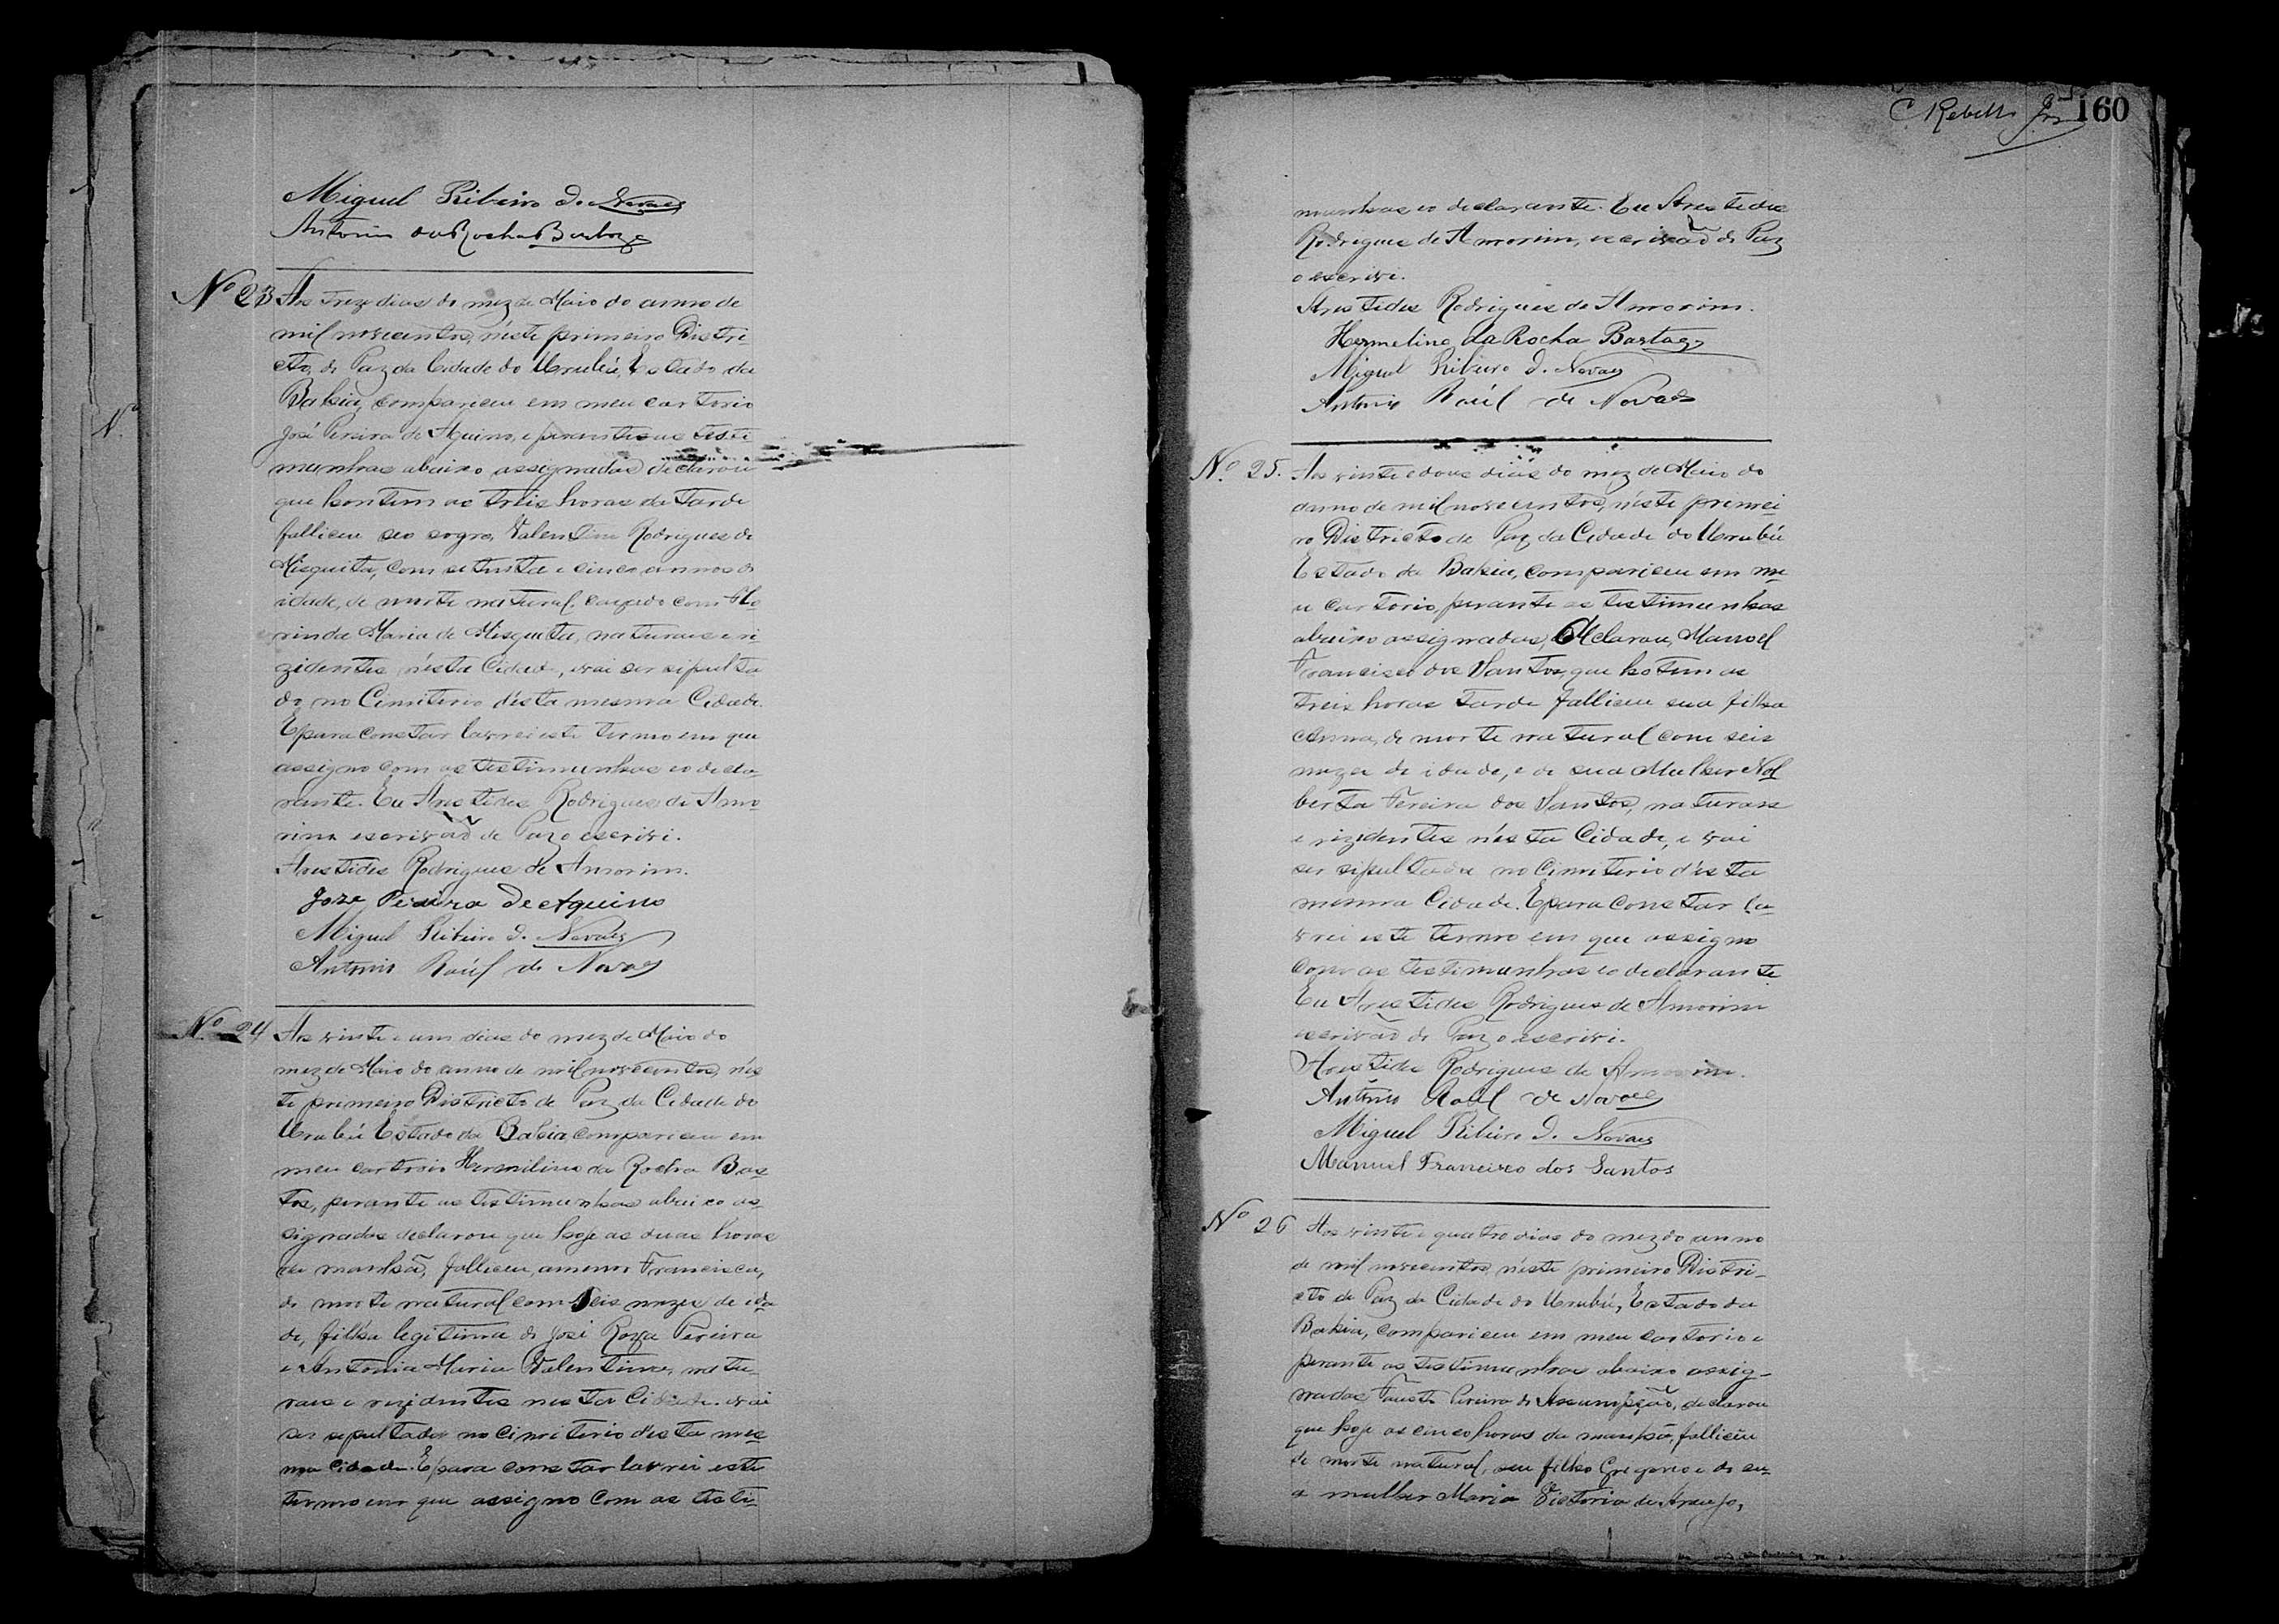 Miguel Ribeiro d. Novaes
Antonio da Rocha Barboza
Nº 23 Aos treze dias do mez de Maio do anno de
mil novecentos, néste primeiro Distri
cto, de Paz da Cidade do Urubú, Estado da
Bahia, compareceu em meu cartorio
José Pereira de Aquino, e perante as teste
munhas abaixo assignadas declarou
que hontem as treis horas da tarde
falliceu seo sogro, Valentim Rodrigues de
Misquita, com setenta e cinco annos de
idade, de morte natural, cazado com Flo
rinda Maria de Misquita, naturaes e ri
zidentes nésta Cidade, vai ser sipulta
do no Cimiterio désta mesma Cidade.
E para constar lavrei este termo em que
assigno com as testimunhas eo decla
rante. Eu Aristides Rodrigues de Amo
rim escrivão de Paz o escrivi.
Aristides Rodrigues de Amorim.
Joze Pereira de Aquino
Miguel Ribeiro d. Novaes
Antonio Raúl de Novaes
Nº 24 Aos vinte e um dias do mez de Maio do
mez de Maio do anno de mil novecentos, nés
te primeiro Districto de Paz da Cidade do
Urubú Estado da Bahia, compareceu em
meu cartroio Hermilino da Rocha Bas
tos, perante as testimunhas abaixo as
signadas declarou que hoje as duas horas
da manhã, falliceu, a menor Francisca,
de morte natural com seis mezes de ida
de, filha legitima de José Roza Pereira
e Antonia Maria Valentina, natu
raes e rezidentes nesta Cidade. vai
ser sepultada no Cimiterio desta mes
ma Cidade. E para constar lavrei este
termo em que assigno com as testi
C Rebello Jor 160
munhas eo declarante. Eu Aristides
Rodrigues de Amorim, escrivão de Paz
o escrivi.
Aristides Rodrigues de Amorim.
Hermelino da Rocha Bastos
Miguel Ribeiro d. Novaes
Antonio Raúl de Novaes
Nº 25. Aos vinte e dous dias do mez de Maio do
anno de mil novecentos, néste primei
ro Districto de Paz da Cidade do Urubú
Estado da Bahia, compareceu em me
u cartorio, perante as testimunhas
abaixo assignadas, declarou, Manoel
Francisco dos Santos, que hotem as
treis horas tarde falliceu sua filha
Anna, de morte natural com seis
mezes de idade, e de sua Mulher Nol
berta Ferreira dos Santos, naturaes
e rizidentes nésta Cidade, e vai
ser sipultada no Cimiterio désta
mesma Cidade. E para constar la
vrei este termo em que assigno
com as testimunhas eo declarante
Eu Aristides Rodrigues de Amorim
escrivão de Paz o escrivi.
Aristides Rodrigues de Amorim.
Antônio Raúl de Novaes
Miguel Ribeiro d. Novaes
Manuel Francisco dos Santos
Nº 26 Aos vinte e quatro dias do mez do anno
de mil novecentos, néste primeiro Distri-
cto de Paz da Cidade do Urubú, Estado da
Bahia, compareceu em meu cartorio e
perante as testimunhas abaixo assig-
nadas Fausto Pereira de Assumpção, declarou
que hoje as cinco horas da manhã, falliceu
de morte natural, seu filho Gregorio e de su
a mulher Maria Victoria de Araujo,